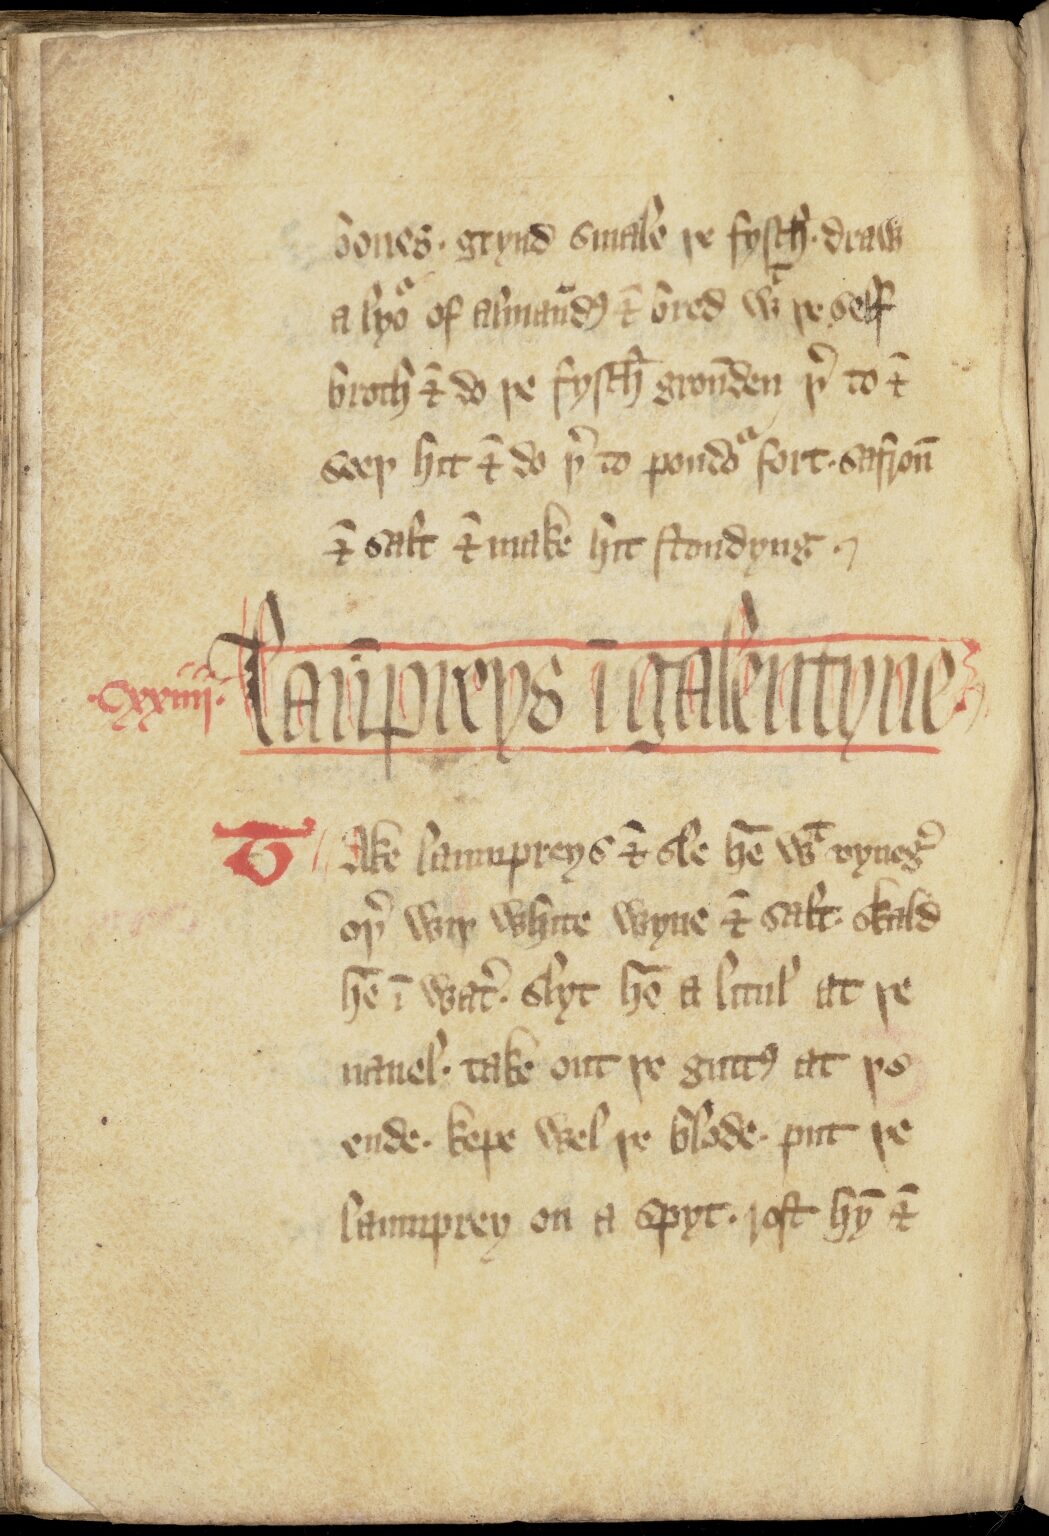 bones· grynd smale þe fysch̄· draw
a lyoᵃ of almaūdꝰ ⁊̄ bred wᵗ þe self
broth ⁊̄ do þe fysch̄ groūden þ̉ to ⁊̄
seeþ hit ⁊̄ do þ̉ to poudoᵃ fort· safron̄
⁊̄ salt ⁊̄ make hit stondyng ·
·Cxxiiii· Laūpreys ī galentyne
Take laumpreys ⁊̄ sle hē wᵗ vyneg̉
oþ̉ wiþ white wyne ⁊̄ salt· skald
hē ī wat̉· slyt hē a litul at þe
nauel· take out þe guttꝰ at þs
ende· kepe wel þe blode· put þe
laumprey on a spyt· rost hȳ ⁊̄